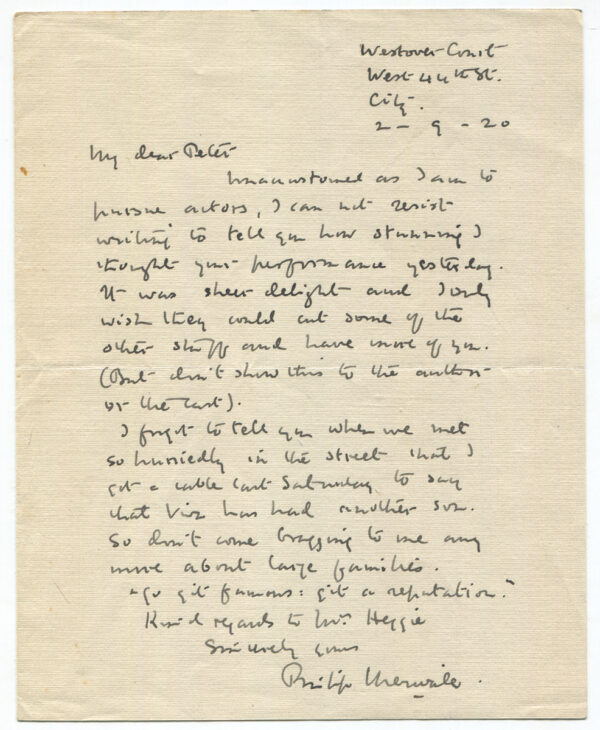 Westover Court
West 44th St.
City.
2 - 9 - 20
My dear Peter
Unaccustomed as I am to
pursue actors, I can not resist
writing to tell you how stunning I
thought your performance yesterday.
It was sheer delight and I only
wish they could cut some of the
other stuff and have more of you.
(But don't show this to the author
or the cast).
I forgot to tell you when we met
so hurriedly in the street that I
got a cable last Saturday to say
that Viva has had another son.
So don't come bragging to me any
more about large families.
"go git famous: git a reputation."
Kind regards to Mrs Heggie
Sincerely yours
Philip Merivale.